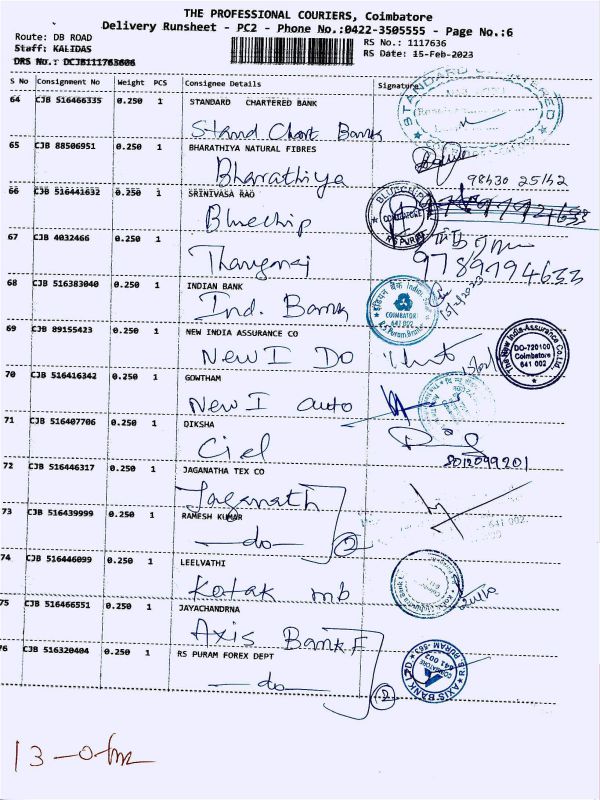 THE PROFESSIONAL COURIERS, Coimbatore
Delivery Runsheet - PC2 - Phone No.:0422-3505555 - Page No.:6
Route: DB ROAD
RS No.: 1117636
Staff: KALIDAS
RS Date: 15-Feb-2023
DRS No.: DCJB111763606
S No Consignment No Weight PCS Consignee Details Signature
64 CJB 516466335 0.250 1 STANDARD CHARTERED BANK
Stand Chart Bank
65 CJB 88506951 0.250 1 BHARATHIYA NATURAL FIBRES
Bharathiya
98430 25142
66 CJB 516441632 0.250 1 SRINIVASA RAO
Bluechip
BLUECHIP COIMBATORE RS PURAM
67 CJB 4032466 0.250 1
Thangaraj
9789794633
68 CJB 516383040 0.250 1 INDIAN BANK
Ind. Bank
COIMBATORE 641 002 R.S. Puram Branch
69 CJB 89155423 0.250 1 NEW INDIA ASSURANCE CO
New I DO
The New India Assurance Co. Ltd. DO-720100 Coimbatore 641 002
70 CJB 516416342 0.250 1 GOWTHAM
New I auto
71 CJB 516407706 0.250 1 DIKSHA
Ciel
8012099201
72 CJB 516446317 0.250 1 JAGANATHA TEX CO
Jaganath
73 CJB 516439999 0.250 1 RAMESH KUMAR
-641 002.
—do— 2
74 CJB 516446099 0.250 1 LEELVATHI
Kotak mb
75 CJB 516466551 0.250 1 JAYACHANDRNA
Axis Bank F
76 CJB 516320404 0.250 1 RS PURAM FOREX DEPT
AXIS BANK LTD R.S. PURAM COIMBATORE 641 002
—do— 2